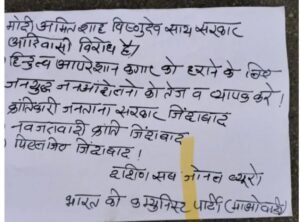 मोदी अमित शाह विष्णुदेव साय सरकार
आदिवासी विरोध है।
हिन्दुत्व आपरेशन कगार को हराने के लिए
जनयुद्ध जनआंदोलन को तेज व व्यापक करे!
क्रांतिकारी जनताना सरकार जिंदाबाद
नवजनवादी क्रांति जिंदाबाद
जिंदाबाद!
दक्षिण सब जोनल ब्यूरो
भारत की कम्युनिस्ट पार्टी (माओवादी)